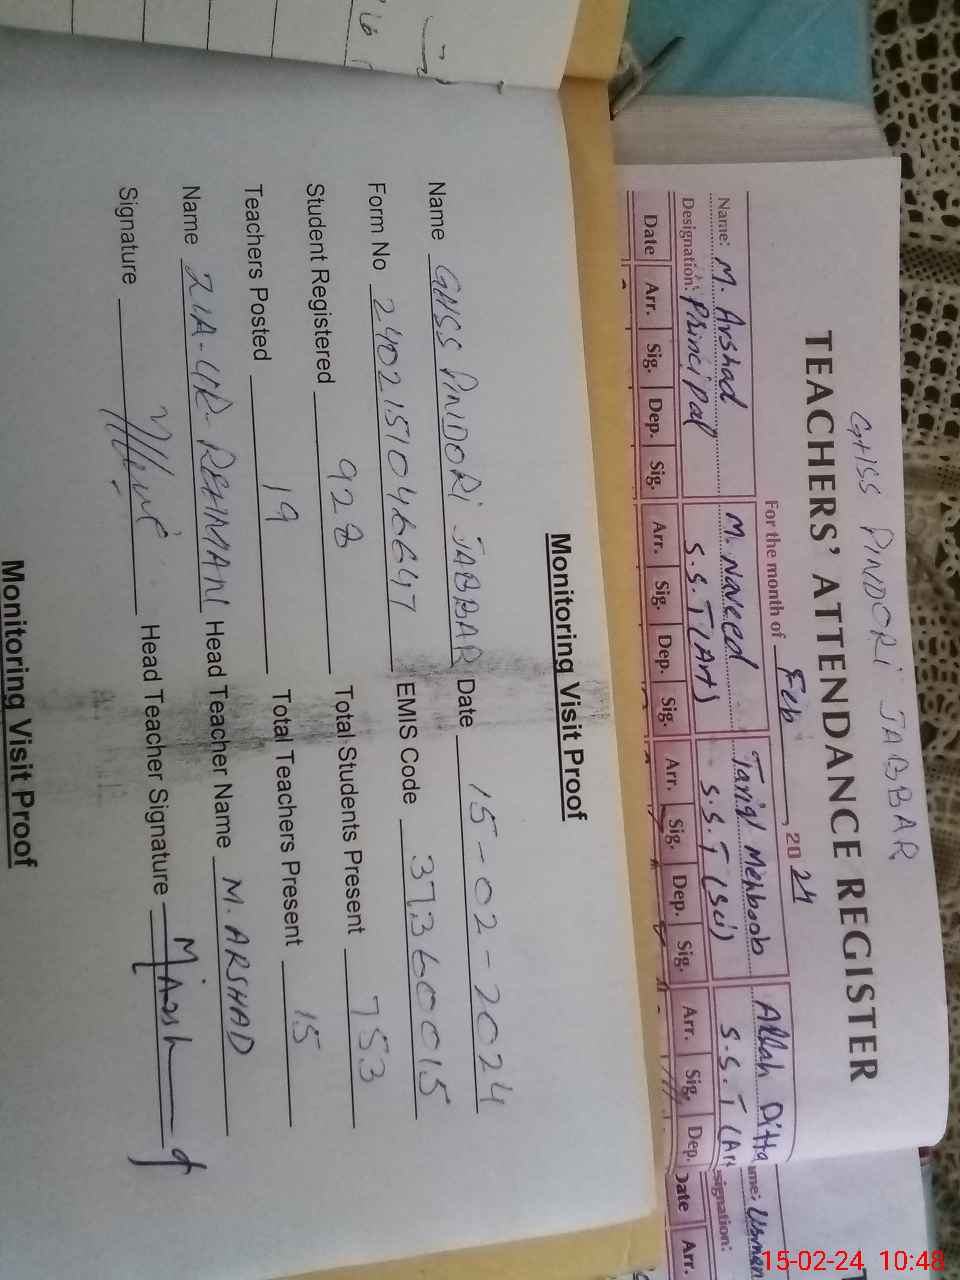 GHSS PINDORI JABBAR
TEACHERS' ATTENDANCE REGISTER
For the month of Feb, 2024
Name: M. Arshad M. Naveed Tariq Mehboob Allah Ditta ame: Usman
Designation: Principal S.S.T (Art) S.S.T (Sci) S.S.T (Ar signation:
Date Arr. Sig. Dep. Sig. Arr. Sig. Dep. Sig. Arr. Sig. Dep. Sig. Arr. Sig. Dep. Date Arr.
Monitoring Visit Proof
Name GHSS PINDORI JABBAR Date 15-02-2024
Form No 2402151046647 EMIS Code 37360015
Student Registered 928 Total Students Present 753
Teachers Posted 19 Total Teachers Present 15
Name ZIA-UR-REHMAN Head Teacher Name M. ARSHAD
Signature Head Teacher Signature M Arsh
Monitoring Visit Proof
15-02-24 10:48